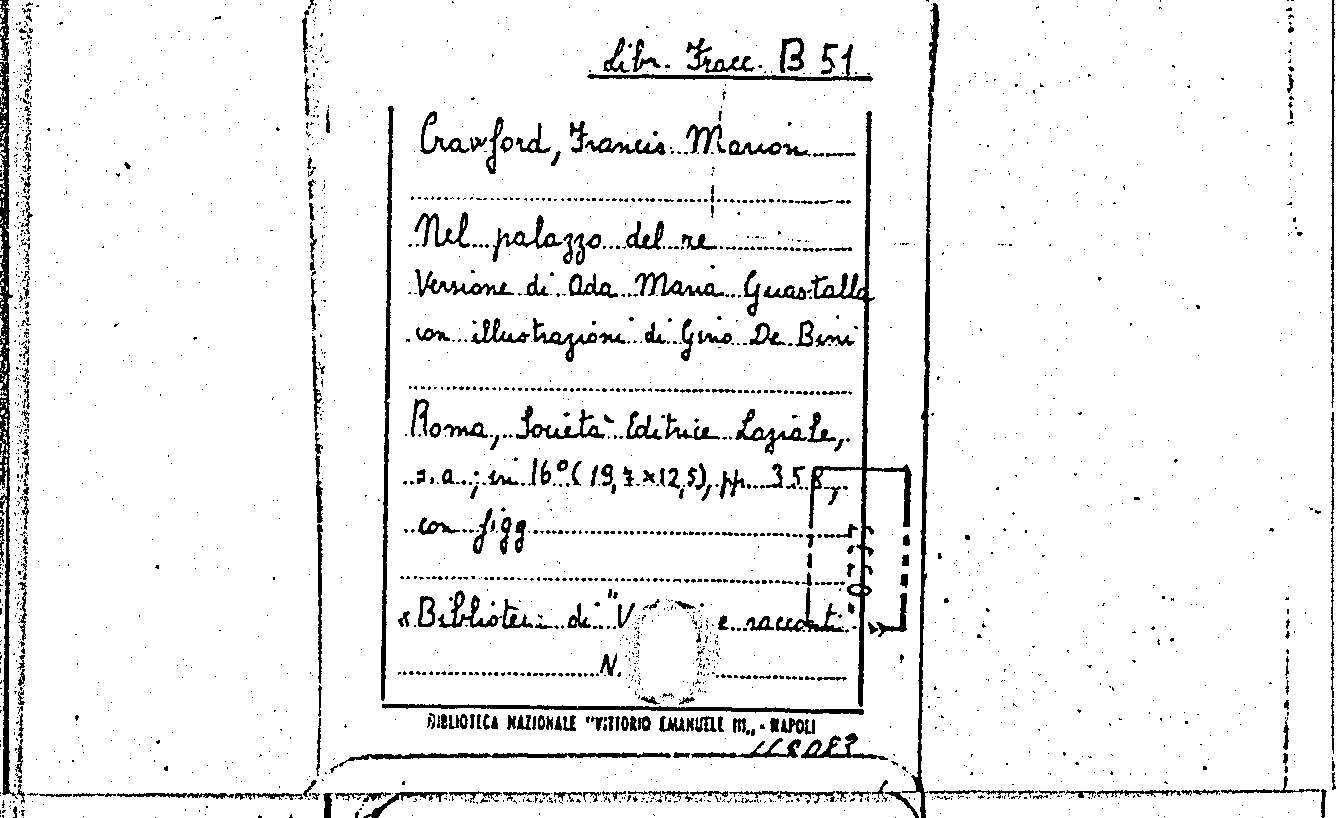 Libr. Fracc. B 51
Crawford, Francis Marion
Nel palazzo del re
Versione di Ada Maria Guastalla
con illustrazioni di Gino De Bini
Roma, Società Editrice Laziale,
s.a.; in 16° (19,7×12,5), pp. 358,
con figg
«Bibliote di "V e racconti"
N.
BIBLIOTECA NAZIONALE "VITTORIO EMANUELE III„ - NAPOLI